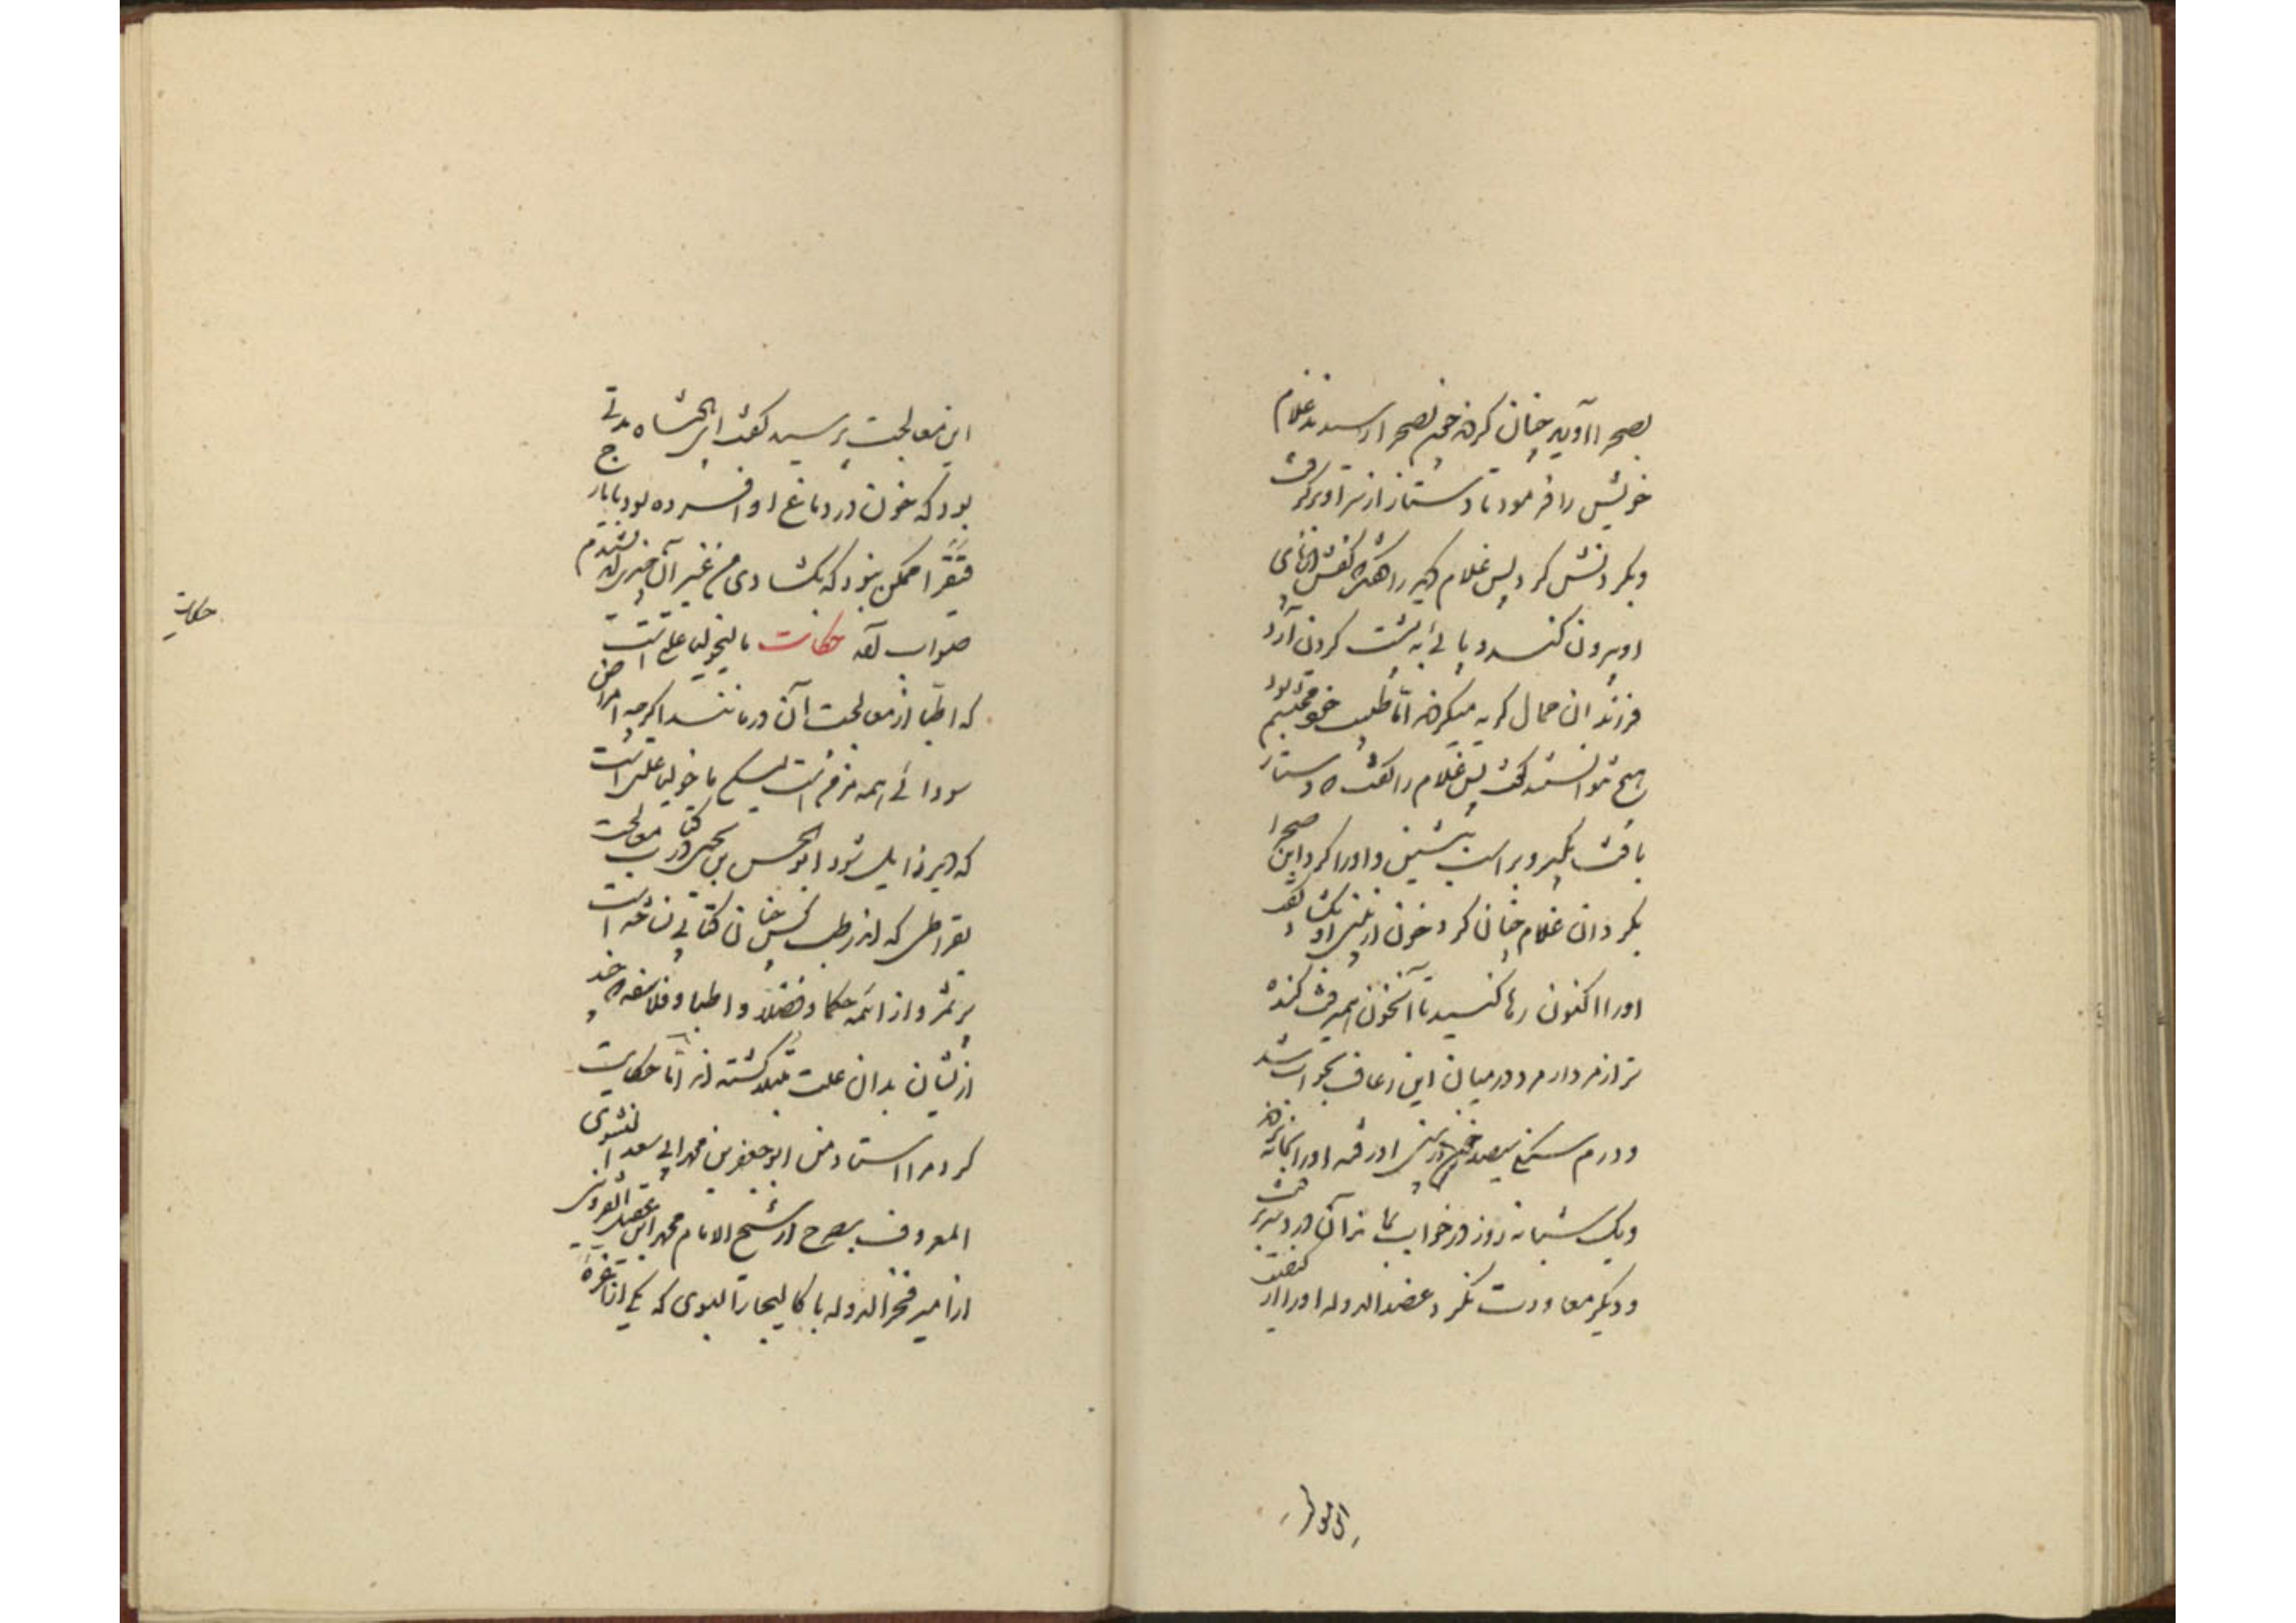 بصحرا آوید چنان کردند چون بصحرا رسیدند غلام
خویش را فرمود تا دستار از سر او برگرفت
و بگردنش کرد پس غلام دیگر را گفت کفش از پای
او بیرون کند و پائی به پشت گردن آرد
فرزندان حمال گریه میکردند اما طبیب خود محتشم بود
هیچ نتوانستند گفت پس غلام را گفت که دستار
بافته بگیر و بر اسب نشین و او را گرد این صحرا
بگردان غلام چنان کرد خون از بینی او بگشاد گفت
او را اکنون رها کنید تا آن خون همیرفت گنده
تر از مردار مرد در میان این رعاف بخواب شد
و درم سنگی سیصد خون از بینی او رفت او را بخانه بردند
و یک شبانه روز در خواب بماند آن درد سر برفت
و دیگر معاودت نکرد عضدالدوله او را از کیفیت
این معالجت
این معالجت پرسید گفت ای پادشاه مدتی
بود که خون در دماغ او افسرده بود با یارج
فیقرا ممکن نبود که بگشادی من غیر آن چیزی اندیشیدم
صواب آمد حکایت مالیخولیا علتی است
که اطبا از معالجت آن درمانند اگرچه امراض
سودائی همه مزمن است لیکن مالیخولیا علتی است
که دیر زایل شود ابوالحسن بن یحیی در کتاب معالجت
بقراطی که اندر طب کس چنان کتابی نساخته است
برشمرد از ائمه حکما و فضلا و اطبا و فلاسفه که چند
از ایشان بدان علت مبتلا گشته اند اما حکایت
کرد مرا استاد من ابوجعفر بن محمد ابی سعد النشوی
المعروف بصرح از شیخ الامام محمد ابن عقیل القزوینی
از امیر فخرالدوله باکالیجار البوی که یکی از اعزه
حکایت